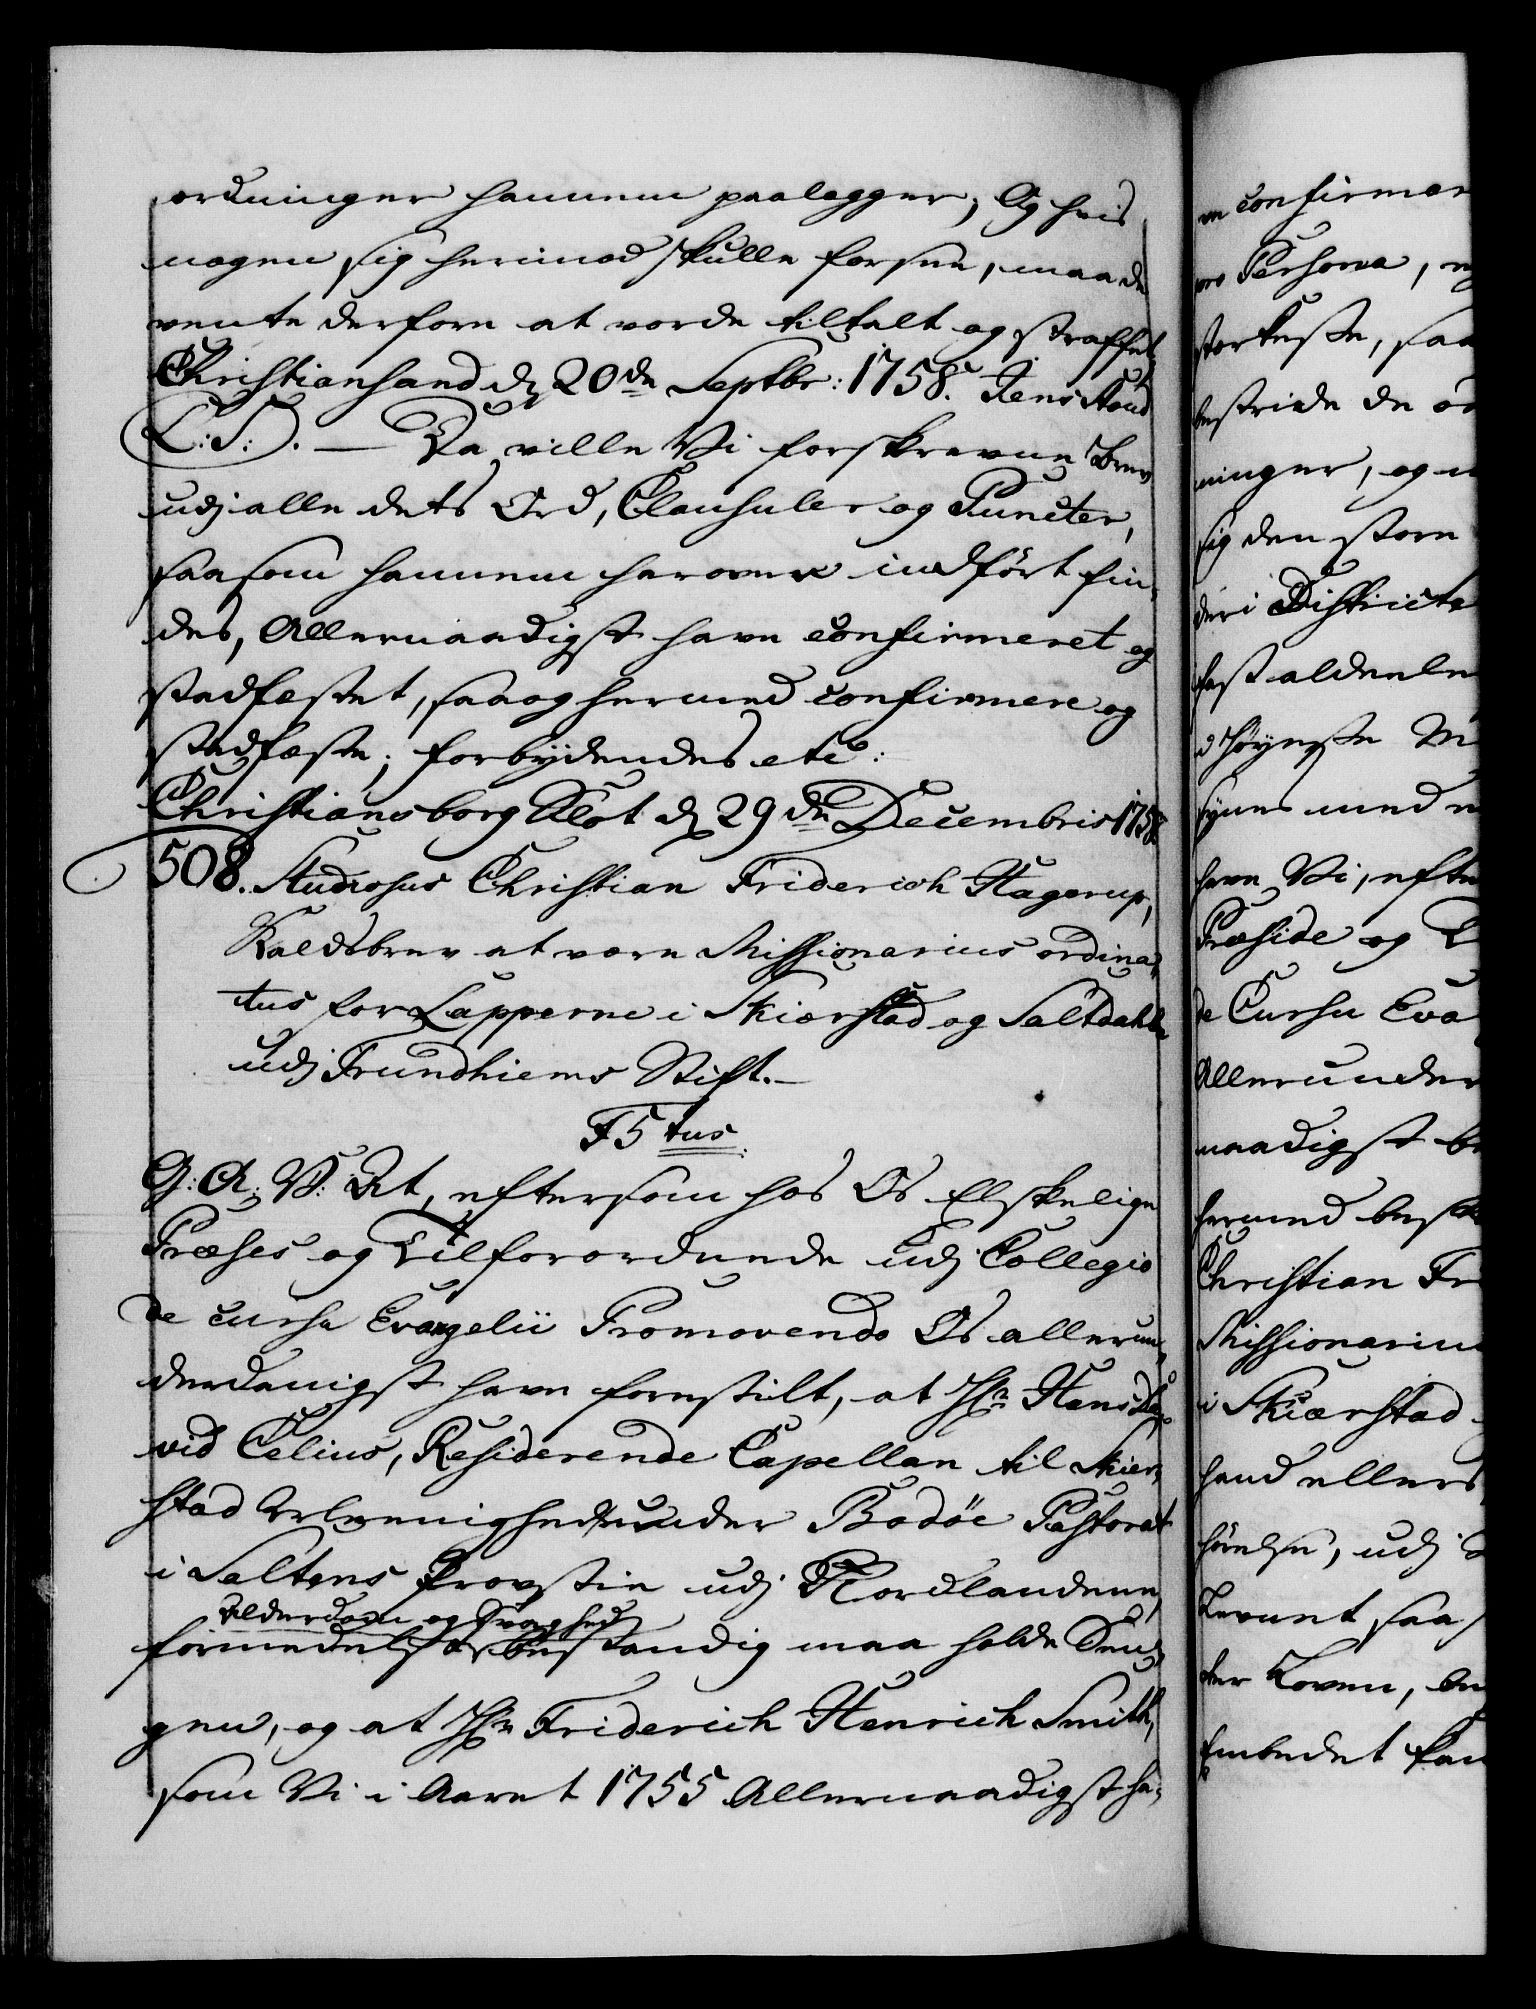 ordninger hannem paalegger; Og hvis
nogen sig herimod skulle forsee, maa de
vente derfore at vorde tiltalt og straffet
Christiansand d. 20de Septbr: 1758. Jens
(L:S:). — Da ville Vi forskrevne Brev
udj alle dets Ord, Clausuler og Puncter,
saasom hannem herover indført fin-
des, Allernaadigst have confirmeret og
stadfæstet, saa og hermed confirmere og
stadfæste; forbydendes etc:
Christiansborg Slot d. 29de Decembris 1758.
508. Studiosus Christian Friderich Hagerup,
Kaldsbrev at være Missionarius ordina-
tus for Lapperne i Skiærstad og Saltdahlen
udj Trundhiems Stift. —
F5tus.
G: A: V: At, eftersom hos Os Elskelige
Præses og Tilforordnede udj Collegio
de cursu Evangelii Promovendo Os allerun-
derdanigst have forestilt, at Hr. Hans Da-
vid Celius, Residerende Capellan til Skier-
stad under Bodøe Pastorat
i Saltens Provstie udj Nordlandene,
Alderdom og Svaghed
formedelst bestandig maa holde Sen-
gen, og at Hr. Friderich Henrich Smith,
som Vi i Aaret 1755 Allernaadigst ha-
confirmere
Persona,
sterkeste, saa
bestride de
ninger, og
sig den store
der i Districte
fast aldeele
høyeste
synes med
have Vi, efter
Præside og
de Cursu Eva
Allerunder
naadigst
hermed
Christian Fr
Missionarius
i Skiærstad
hand ellers
hørelse, udj
Levnet, saa
der Loven,
Embedet kan